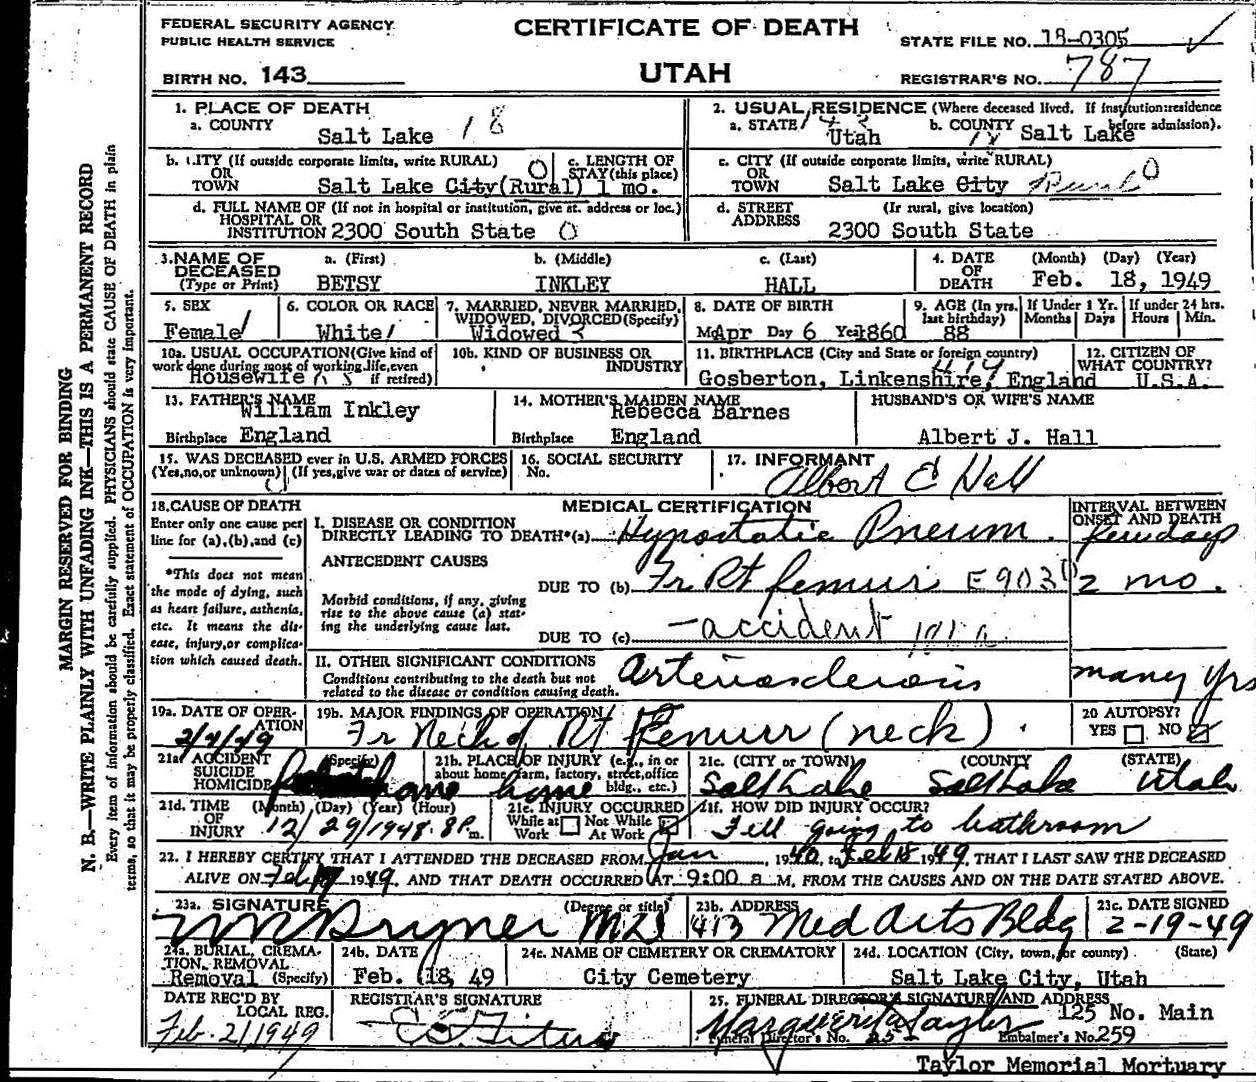 FEDERAL SECURITY AGENCY
PUBLIC HEALTH SERVICE
CERTIFICATE OF DEATH
STATE FILE NO. 18-0305
BIRTH NO. 143
UTAH
REGISTRAR'S NO. 787
MARGIN RESERVED FOR BINDING
N. B.—WRITE PLAINLY WITH UNFADING INK—THIS IS A PERMANENT RECORD
Every item of information should be carefully supplied. PHYSICIANS should state CAUSE OF DEATH in plain
terms, so that it may be properly classified. Exact statement of OCCUPATION is very important.
1. PLACE OF DEATH
a. COUNTY
Salt Lake 18
2. USUAL RESIDENCE (Where deceased lived. If institution: residence before admission).
a. STATE Utah b. COUNTY Salt Lake
b. CITY (If outside corporate limits, write RURAL) OR TOWN
Salt Lake City (Rural) 0
c. LENGTH OF STAY (this place)
1 mo.
c. CITY (If outside corporate limits, write RURAL) OR TOWN
Salt Lake City Rural 0
d. FULL NAME OF (If not in hospital or institution, give st. address or loc.) HOSPITAL OR INSTITUTION
2300 South State 0
d. STREET ADDRESS (If rural, give location)
2300 South State
3. NAME OF DECEASED (Type or Print)
a. (First) BETSY
b. (Middle) INKLEY
c. (Last) HALL
4. DATE OF DEATH (Month) (Day) (Year)
Feb. 18, 1949
5. SEX
Female
6. COLOR OR RACE
White
7. MARRIED, NEVER MARRIED, WIDOWED, DIVORCED (Specify)
Widowed
8. DATE OF BIRTH
Apr Day 6 Year 1860
9. AGE (In yrs. last birthday)
88
If Under 1 Yr. Months Days
If under 24 hrs. Hours Min.
10a. USUAL OCCUPATION (Give kind of work done during most of working life, even if retired)
Housewife
10b. KIND OF BUSINESS OR INDUSTRY
11. BIRTHPLACE (City and State or foreign country)
Gosberton, Linkenshire, England
12. CITIZEN OF WHAT COUNTRY?
U.S.A.
13. FATHER'S NAME
William Inkley
Birthplace England
14. MOTHER'S MAIDEN NAME
Rebecca Barnes
Birthplace England
HUSBAND'S OR WIFE'S NAME
Albert J. Hall
15. WAS DECEASED ever in U.S. ARMED FORCES
(Yes, no, or unknown) (If yes, give war or dates of service)
16. SOCIAL SECURITY No.
17. INFORMANT
Albert E Hall
18. CAUSE OF DEATH
Enter only one cause per line for (a), (b), and (c)
*This does not mean the mode of dying, such as heart failure, asthenia, etc. It means the disease, injury, or complication which caused death.
MEDICAL CERTIFICATION
INTERVAL BETWEEN ONSET AND DEATH
I. DISEASE OR CONDITION DIRECTLY LEADING TO DEATH*(a) Hypostatic Pneum. few days
ANTECEDENT CAUSES
Morbid conditions, if any, giving rise to the above cause (a) stating the underlying cause last.
DUE TO (b) Fr Rt femur E903 2 mo.
DUE TO (c) - accident
II. OTHER SIGNIFICANT CONDITIONS
Conditions contributing to the death but not related to the disease or condition causing death.
arteriosclerosis many yrs
19a. DATE OF OPERATION
19b. MAJOR FINDINGS OF OPERATION
Fr Neck of Rt Femurr (neck).
20 AUTOPSY?
YES NO
21a. ACCIDENT SUICIDE HOMICIDE (Specify)
home
21b. PLACE OF INJURY (e.g., in or about home, farm, factory, street, office bldg., etc.)
home
21c. (CITY or TOWN) (COUNTY) (STATE)
Salt Lake Salt Lake Utah
21d. TIME OF INJURY (Month) (Day) (Year) (Hour)
12/29/1948 8P m.
21e. INJURY OCCURRED
While at Work Not While At Work
21f. HOW DID INJURY OCCUR?
Fell going to bathroom
22. I HEREBY CERTIFY THAT I ATTENDED THE DECEASED FROM Jan, 1940, to Feb 18 1949, THAT I LAST SAW THE DECEASED
ALIVE ON Feb 1949, AND THAT DEATH OCCURRED AT 9:00 a M, FROM THE CAUSES AND ON THE DATE STATED ABOVE.
23a. SIGNATURE (Degree or title)
MD
23b. ADDRESS
413 Med Arts Bldg
23c. DATE SIGNED
2-19-49
24a. BURIAL, CREMATION, REMOVAL (Specify)
Removal
24b. DATE
Feb. 18, 49
24c. NAME OF CEMETERY OR CREMATORY
City Cemetery
24d. LOCATION (City, town, or county) (State)
Salt Lake City, Utah
DATE REC'D BY LOCAL REG.
Feb. 21 1949
REGISTRAR'S SIGNATURE
25. FUNERAL DIRECTOR'S SIGNATURE AND ADDRESS
125 No. Main
Funeral Director's No. Embalmer's No. 259
Taylor Memorial Mortuary